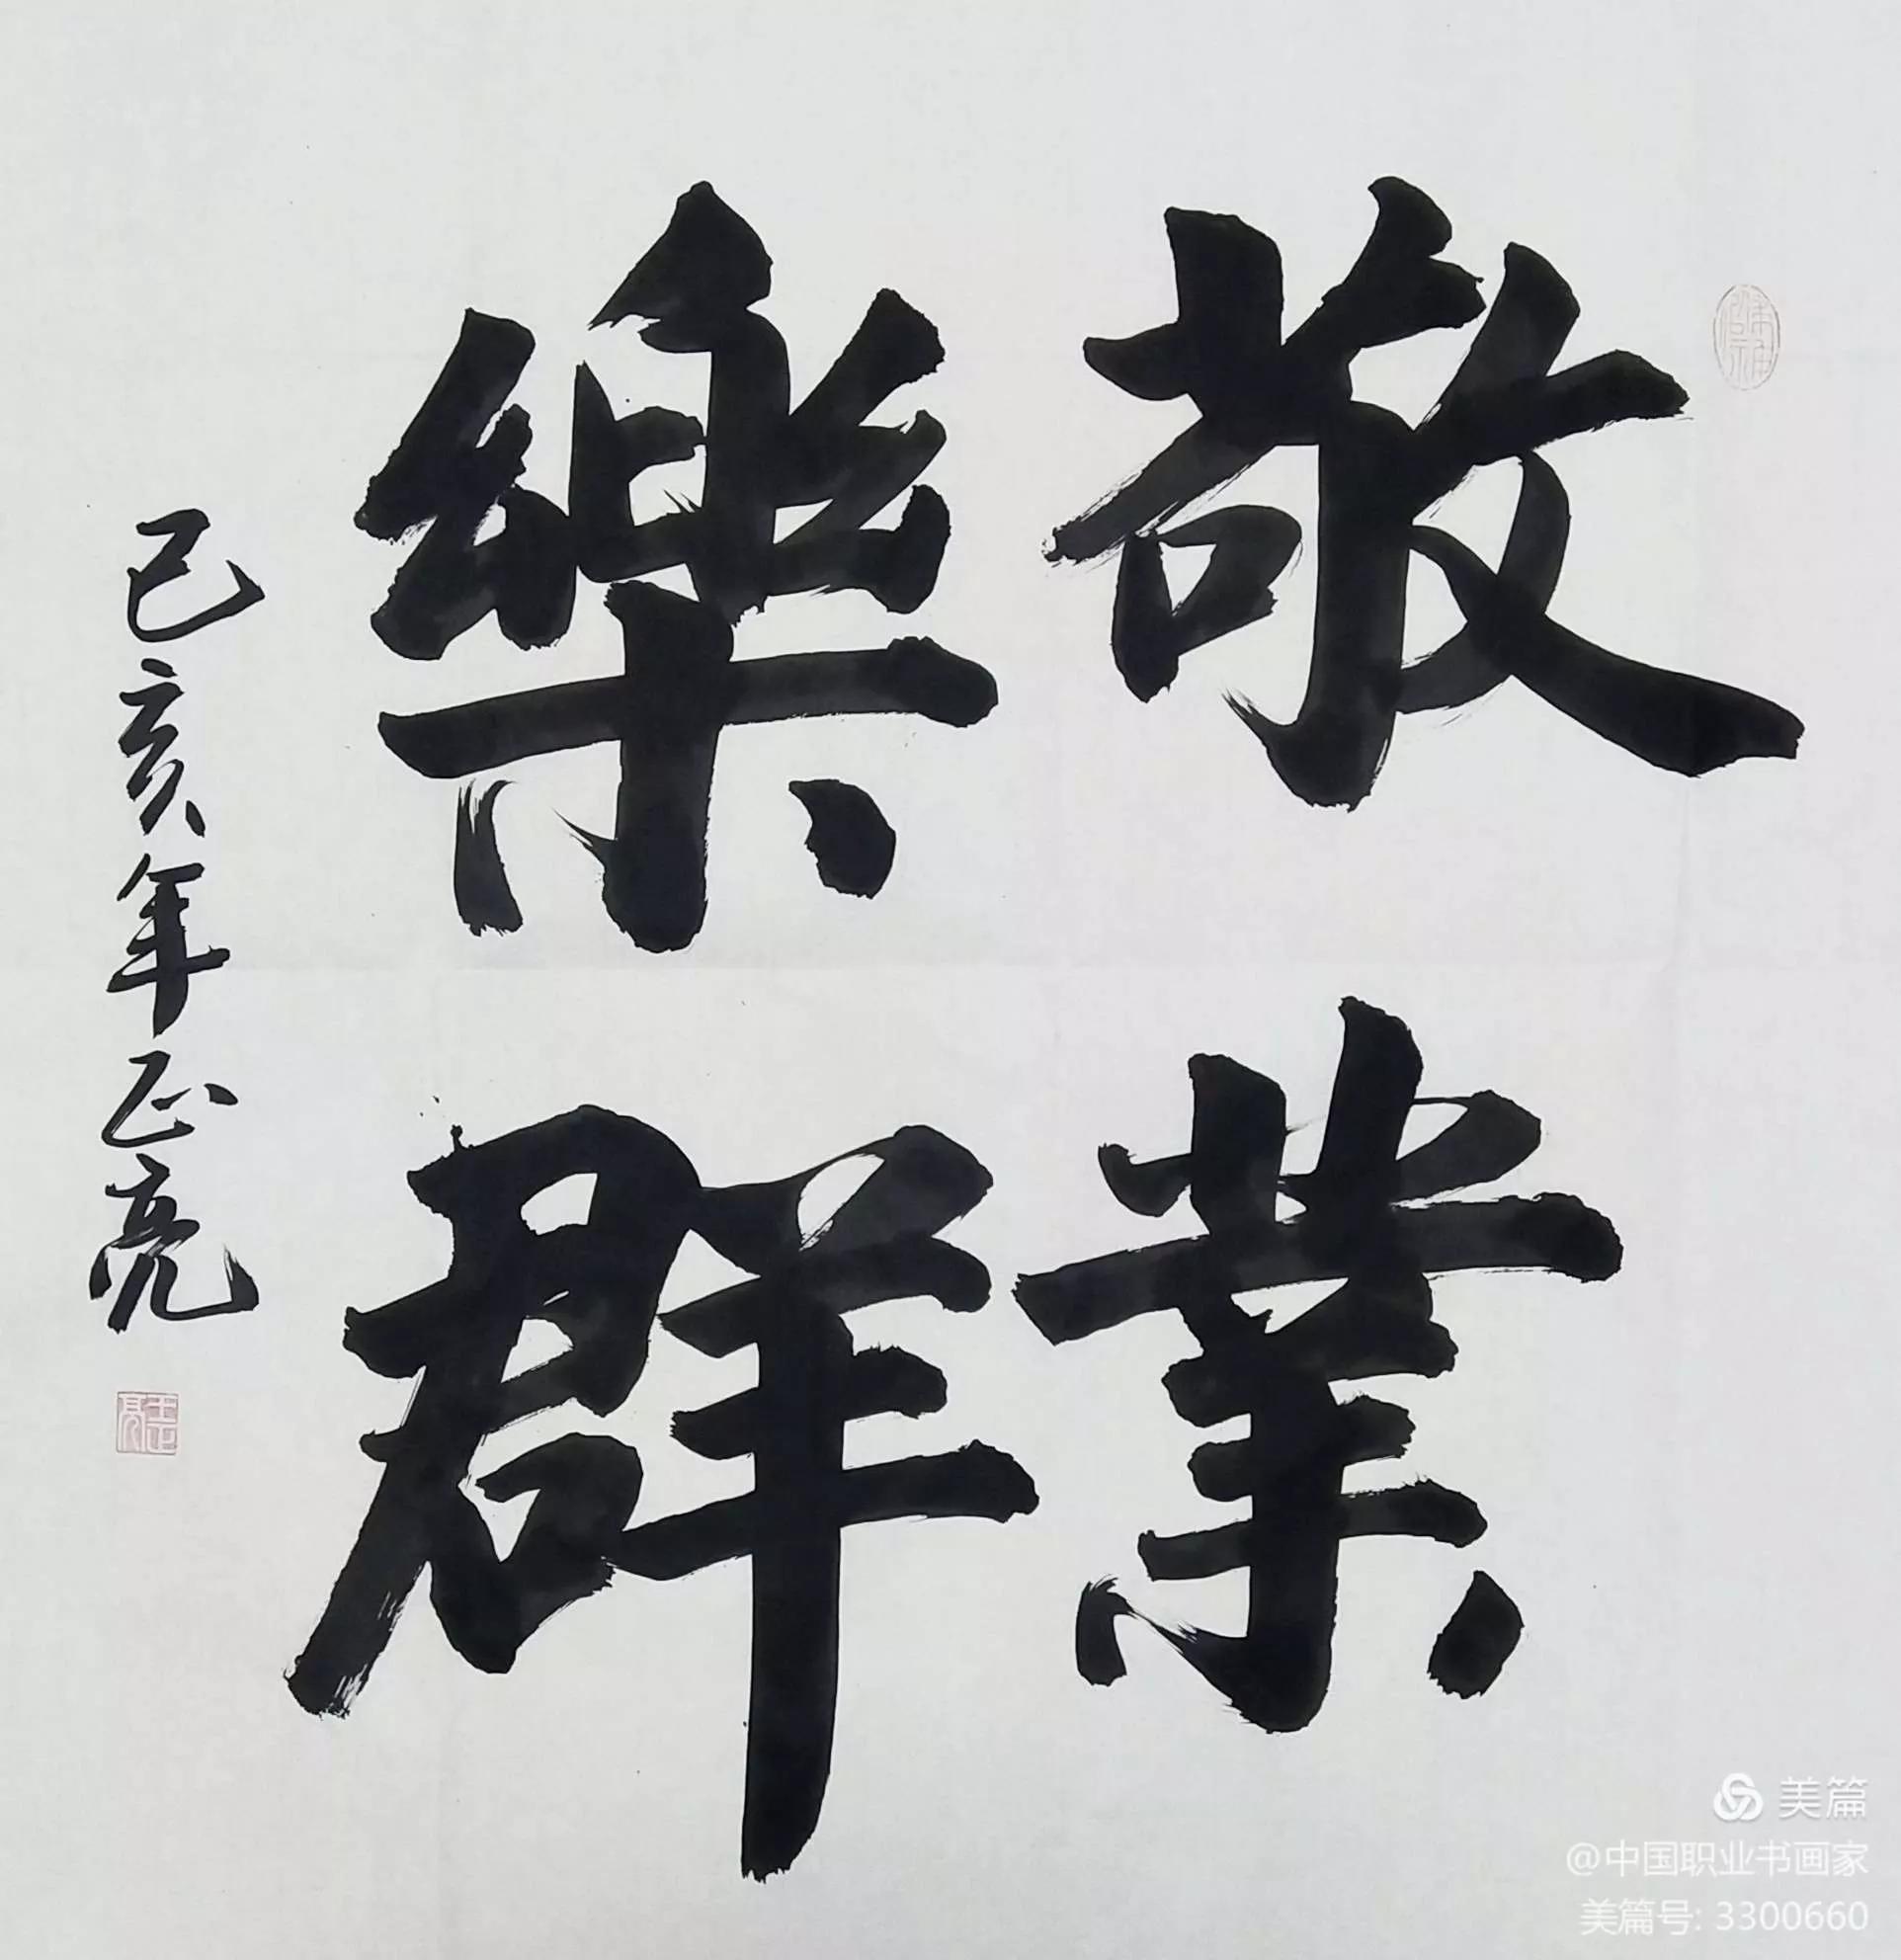 敬業
樂群
己亥年正亮
美篇
@中国职业书画家
美篇号: 3300660